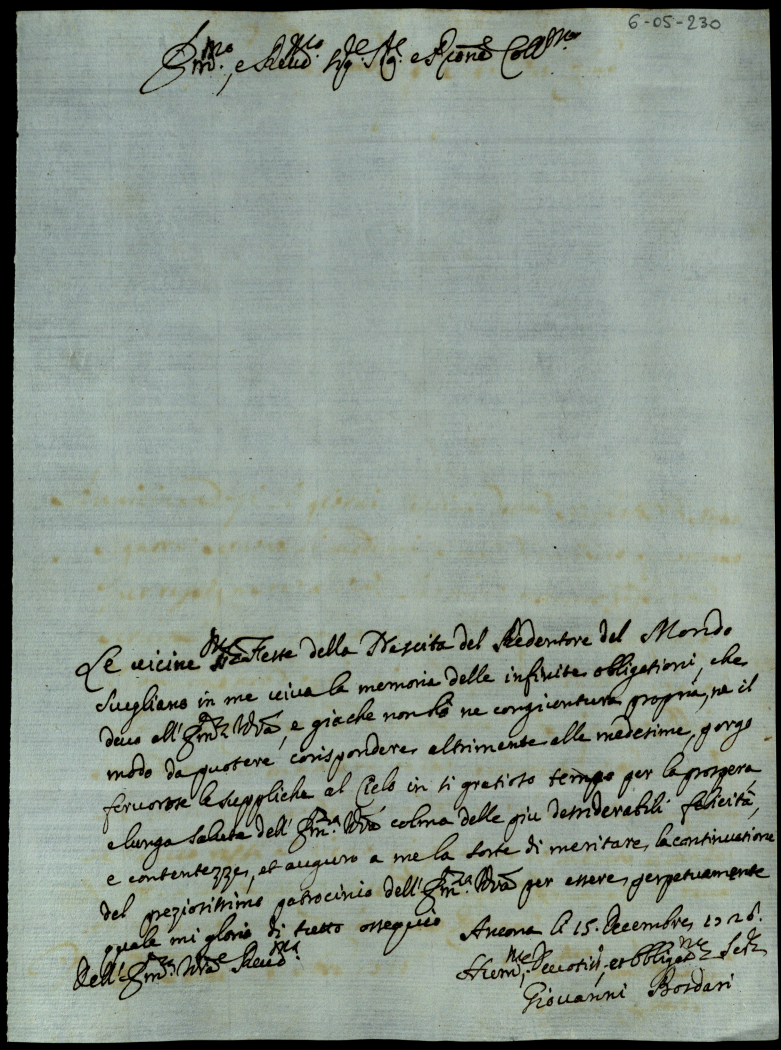 6-05-230
Em.mo, e Reu.mo Sig.e Sig.e e Prone Coll.mo
Le uicine SS.me Feste della Nascita del Redentore del Mondo
suegliano in me uiua la memoria delle infinite obligationi, che
deuo all' Em.za Vra, e giache non hò ne congiuntura propria, ne il
modo da potere corispondere altrimente alle medesime, porgo
feruorose le suppliche al Cielo in si gratioso tempo per la prospera,
e lunga salute dell' Em.za Vra colma delle piu desiderabili felicità,
e contentezze, et auguro a me la sorte di meritare la continuatione
del preziosissimo patrocinio dell' Em.za Vra per essere perpetuamente
quale mi glorio di tutto ossequio
Dell' Em.za Vra Reu.ma
Ancona li 15. Decembre 1726.
Hum.mo Deuotis.o, et Obligat.mo Ser.e
Giouanni Bordari